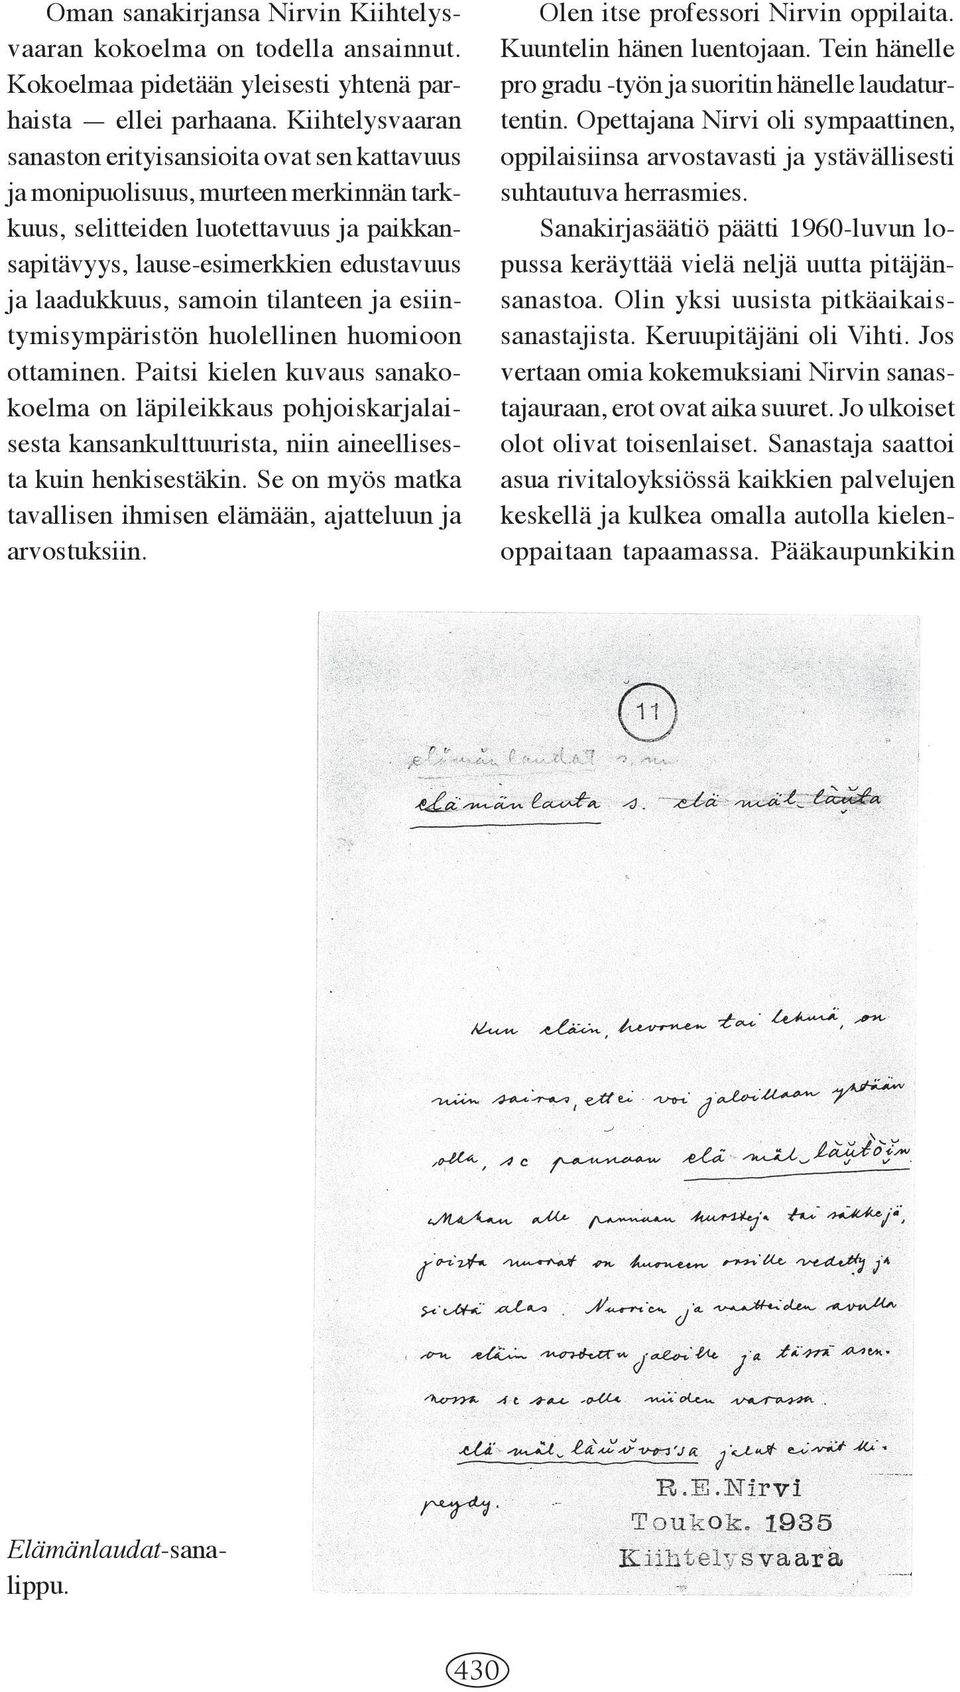 Oman sanakirjansa Nirvin Kiihtelys-
vaaran kokoelma on todella ansainnut.
Kokoelmaa pidetään yleisesti yhtenä par-
haista — ellei parhaana. Kiihtelysvaaran
sanaston erityisansioita ovat sen kattavuus
ja monipuolisuus, murteen merkinnän tark-
kuus, selitteiden luotettavuus ja paikkan-
sapitävyys, lause-esimerkkien edustavuus
ja laadukkuus, samoin tilanteen ja esiin-
tymisympäristön huolellinen huomioon
ottaminen. Paitsi kielen kuvaus sanako-
koelma on läpileikkaus pohjoiskarjalai-
sesta kansankulttuurista, niin aineellises-
ta kuin henkisestäkin. Se on myös matka
tavallisen ihmisen elämään, ajatteluun ja
arvostuksiin.
Olen itse professori Nirvin oppilaita.
Kuuntelin hänen luentojaan. Tein hänelle
pro gradu -työn ja suoritin hänelle laudatur-
tentin. Opettajana Nirvi oli sympaattinen,
oppilaisiinsa arvostavasti ja ystävällisesti
suhtautuva herrasmies.
Sanakirjasäätiö päätti 1960-luvun lo-
pussa keräyttää vielä neljä uutta pitäjän-
sanastoa. Olin yksi uusista pitkäaikais-
sanastajista. Keruupitäjäni oli Vihti. Jos
vertaan omia kokemuksiani Nirvin sanas-
tajauraan, erot ovat aika suuret. Jo ulkoiset
olot olivat toisenlaiset. Sanastaja saattoi
asua rivitaloyksiössä kaikkien palvelujen
keskellä ja kulkea omalla autolla kielen-
oppaitaan tapaamassa. Pääkaupunkikin
11
elämänlaudat s. m.
elämänlauta s. elä mäl_làŭta
Kun eläin, hevonen tai lehmä, on
niin sairas, ettei voi jaloillaan yhtään
olla, se pannaan elä mäl_làŭtòĭn
Mahan alle pannaan hursteja tai säkkejä,
joista nuorat on huoneen orsille vedetty ja
sieltä alas. Nuorien ja vaatteiden avulla
on eläin nostettu jaloille ja tässä asen-
nossa se sae olle niiden varassa.
elä mäl_làŭv̆vos'sa jalat eivät ki-
peydy.
R.E.Nirvi
Toukok. 1935
Kiihtelysvaara
Elämänlaudat-sana-
lippu.
430